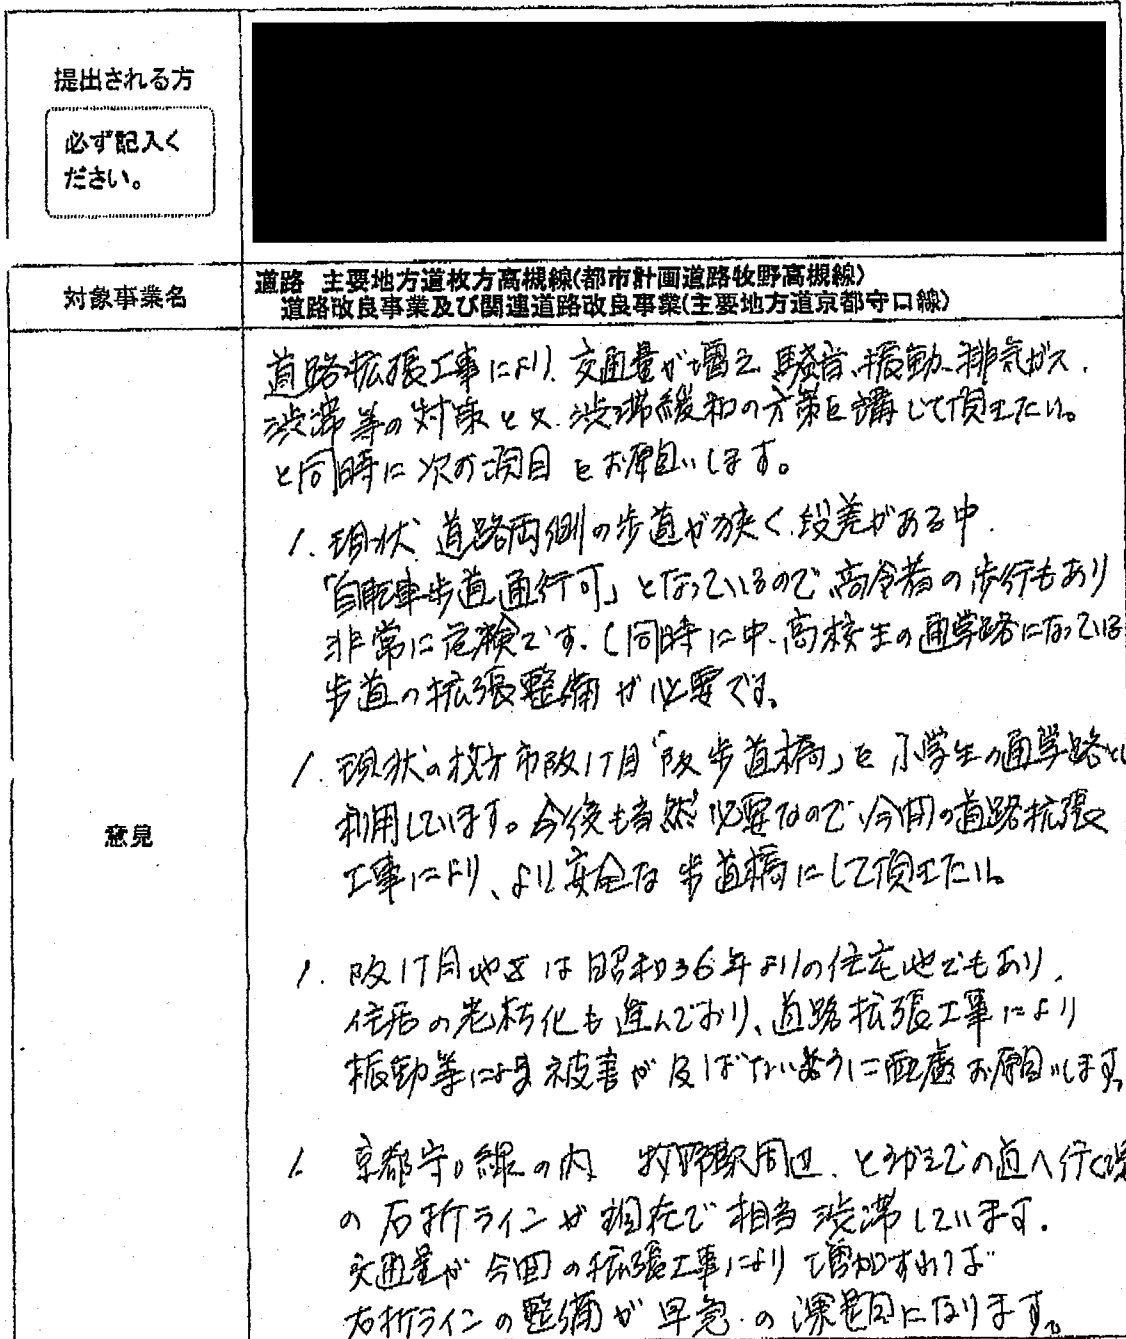 提出される方
必ず記入く
ださい。
対象事業名
道路 主要地方道枚方高槻線(都市計画道路牧野高槻線)
道路改良事業及び関連道路改良事業(主要地方道京都守口線)
意見
道路拡張工事により、交通量が増え、騒音、振動、排気ガス、
渋滞等の対策と又、渋滞緩和の方策を講じて頂きたい。
と同時に次の項目をお願いします。
1. 現状、道路両側の歩道が狭く、段差がある中、
「自転車歩道通行可」となっているので、高令者の歩行もあり
非常に危険です。(同時に中、高校生の通学路になっている
歩道の拡張整備が必要です。
1. 現状の枚方市阪1丁目「阪歩道橋」を小学生の通学路とし
利用しています。今後も当然必要なので、今回の道路拡張
工事により、より安全な歩道橋にして頂きたい。
1. 阪1丁目地区は昭和36年よりの住宅地でもあり、
住居の老朽化も進んでおり、道路拡張工事により
振動等による被害が及ばない様うに配慮お願いします。
1. 京都守口線の内 牧野駅周辺、とうがまでの直へ行く
の右折ラインが現在で相当渋滞しています。
交通量が今回の拡張工事により増加すれば
右折ラインの整備が早急の課題になります。